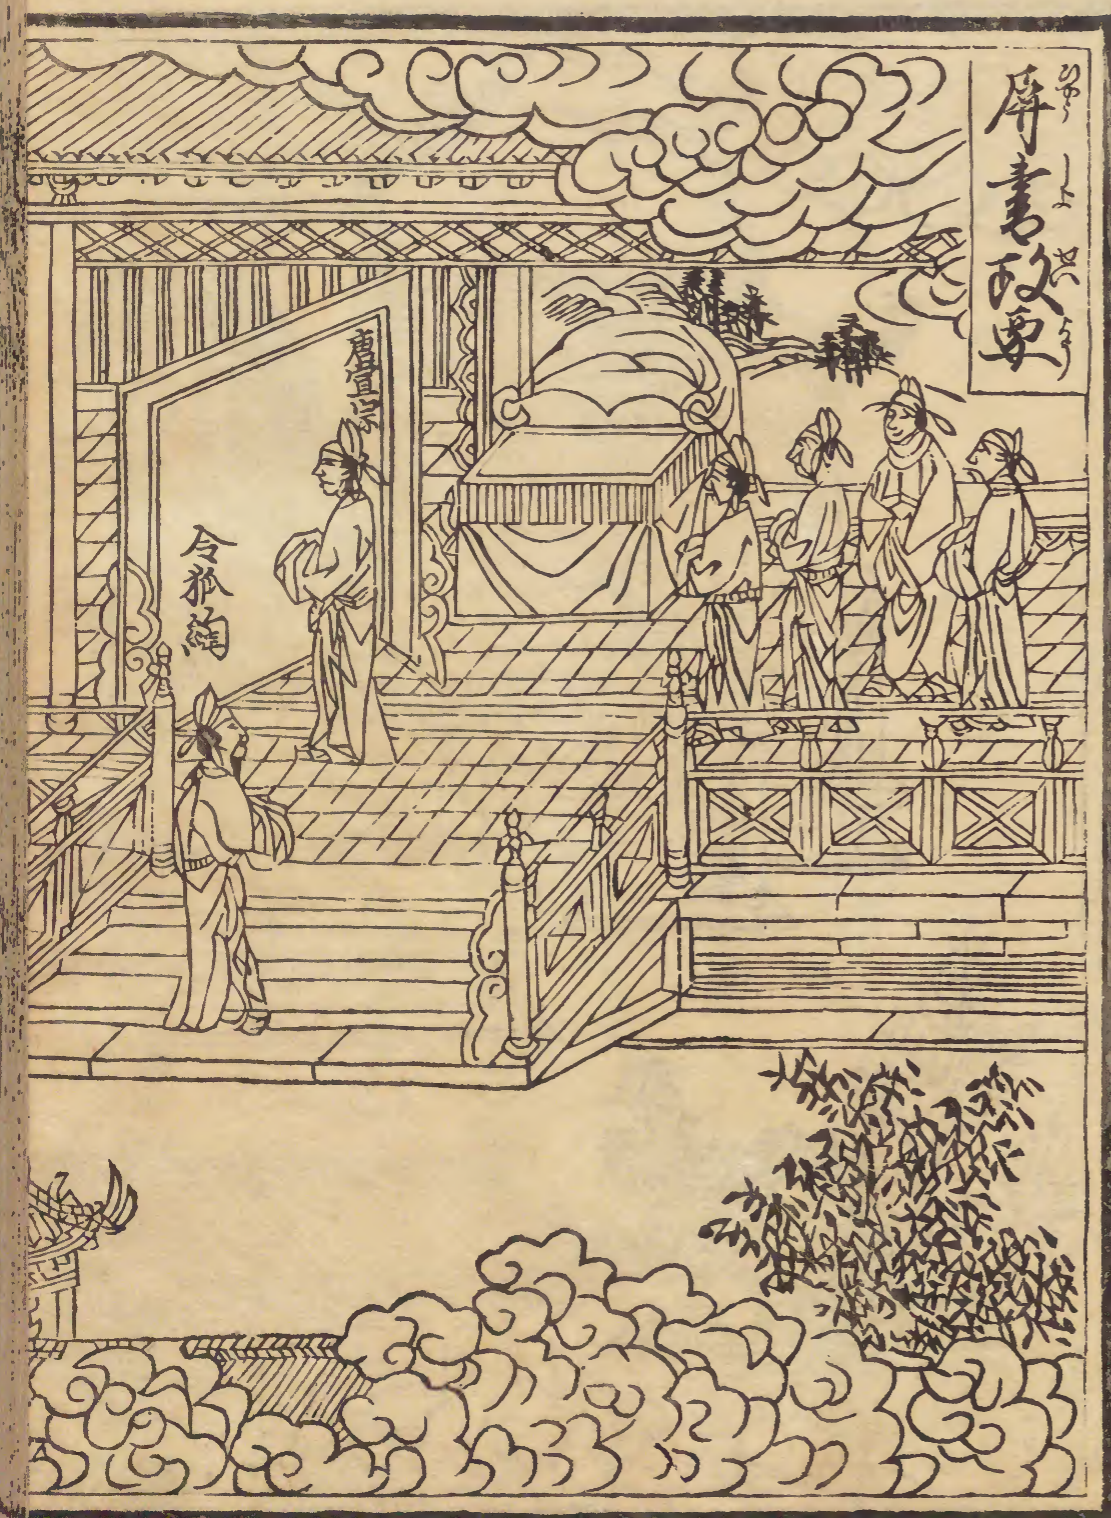 屏書政要
ひやうしよせいよう
唐宣宗
令狐綯